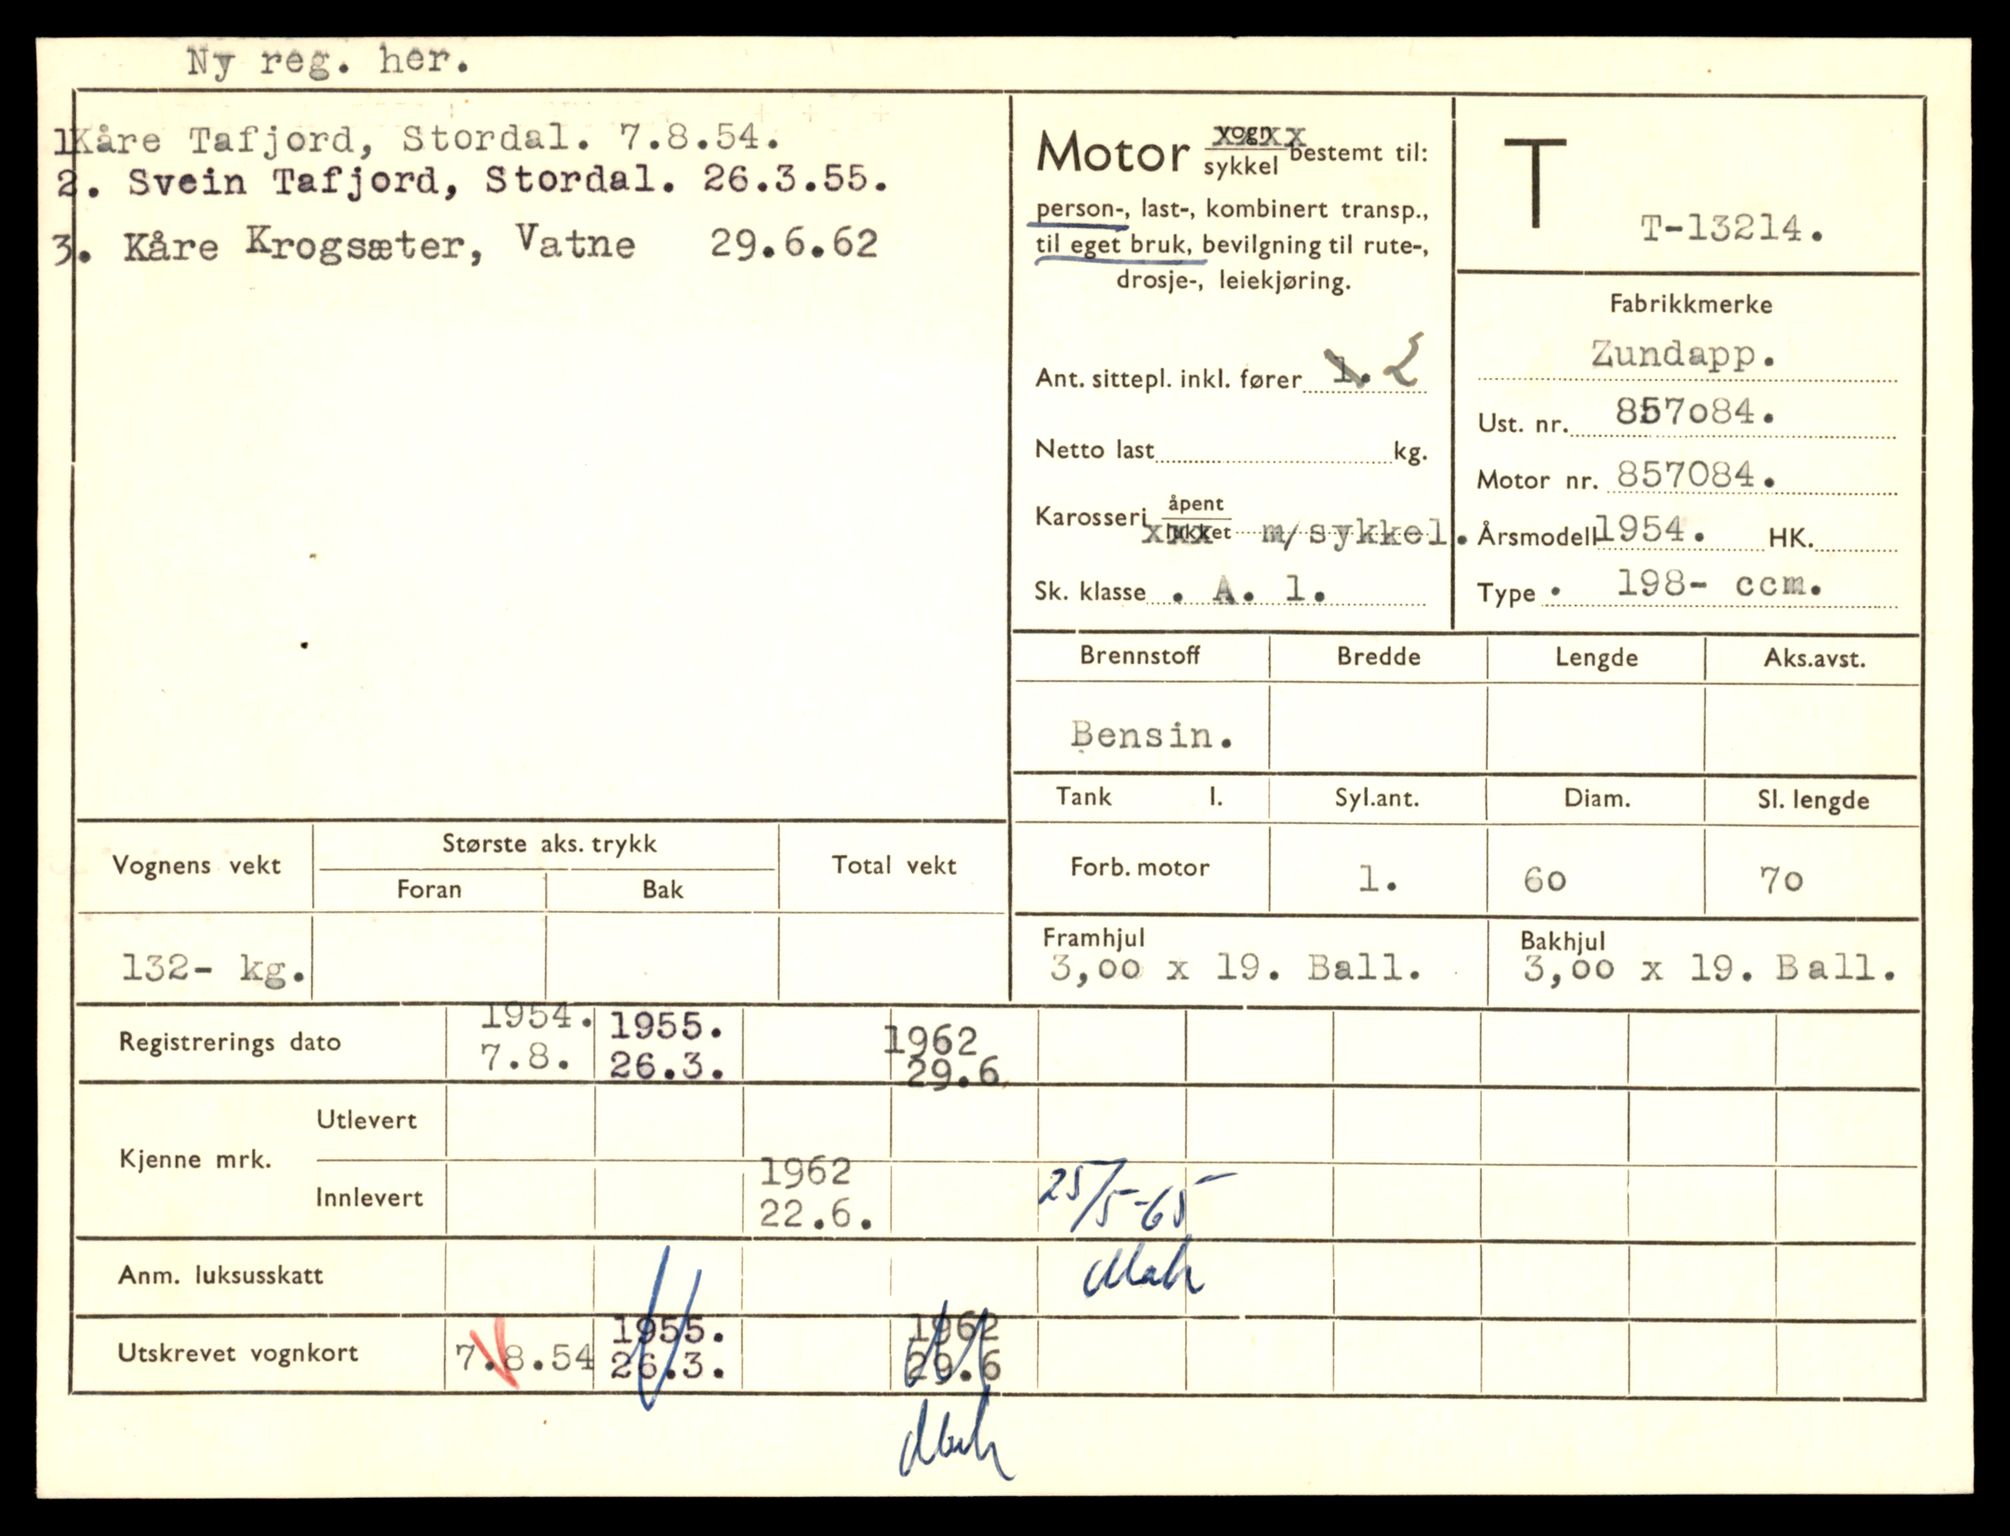 Ny reg. her.
1 Kåre Tafjord, Stordal. 7.8.54.
2. Svein Tafjord, Stordal. 26.3.55.
3. Kåre Krogsæter, Vatne 29.6.62
Motor vogn xxxx
sykkel bestemt til:
person-, last-, kombinert transp.,
til eget bruk, bevilgning til rute-,
drosje-, leiekjøring.
Ant. sittepl. inkl. fører 1. 2
Netto last kg.
Karosseri åpent
lukket xxx m/sykkel.
Sk. klasse . A. 1.
T
T-13214.
Fabrikkmerke
Zundapp.
Ust. nr. 857o84.
Motor nr. 857084.
Årsmodell 1954. HK.
Type . 198- ccm.
Brennstoff Bredde Lengde Aks.avst.
Bensin.
Tank l. Syl.ant. Diam. Sl. lengde
Forb. motor 1. 6o 7o
Framhjul Bakhjul
3,oo x 19. Ball. 3,oo x 19. Ball.
Vognens vekt Største aks. trykk Total vekt
Foran Bak
132- kg.
Registrerings dato 1954. 1955. 1962
7.8. 26.3. 29.6
Kjenne mrk. Utlevert
Innlevert 1962 25/5-65
22.6.
Anm. luksusskatt
Utskrevet vognkort 7.8.54 1955. 1962
26.3. 29.6